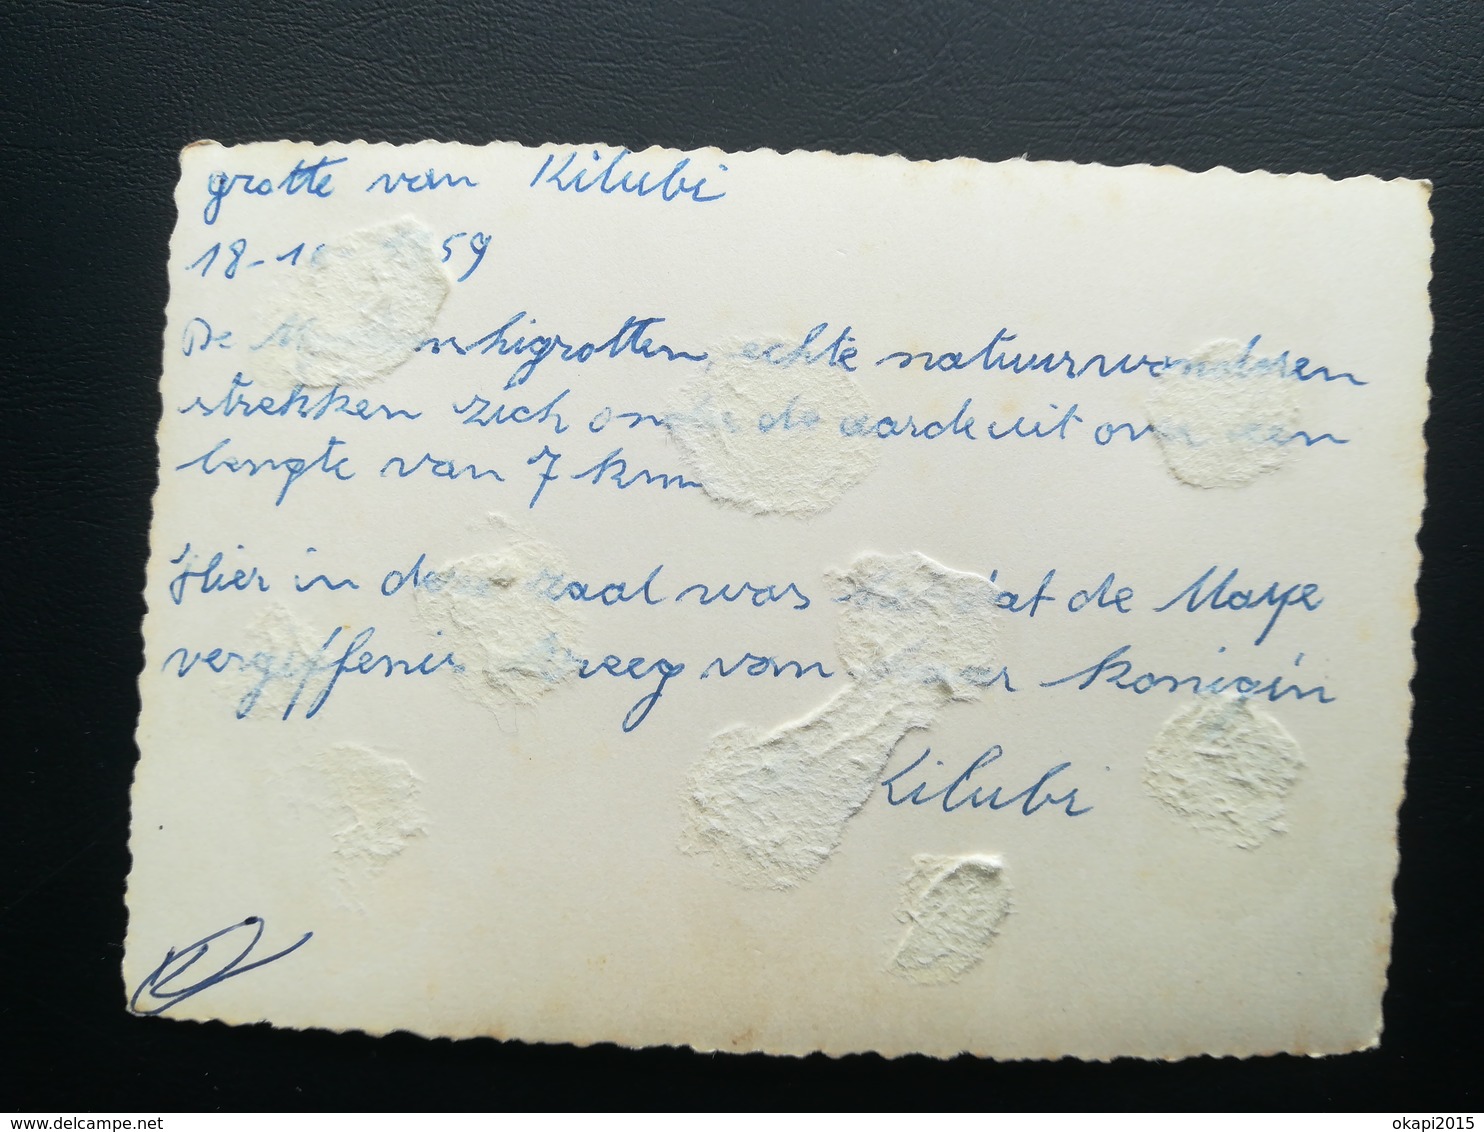 grotte van Kilubi
18-1 59
De nhigrotten, echte natuurwonderen
strekken zich onder de aarde uit over een
lengte van 7 km
Hier in deze zaal was dat de Maye
vergiffenis kreeg van haar konigin
Kilubi
okapi2015